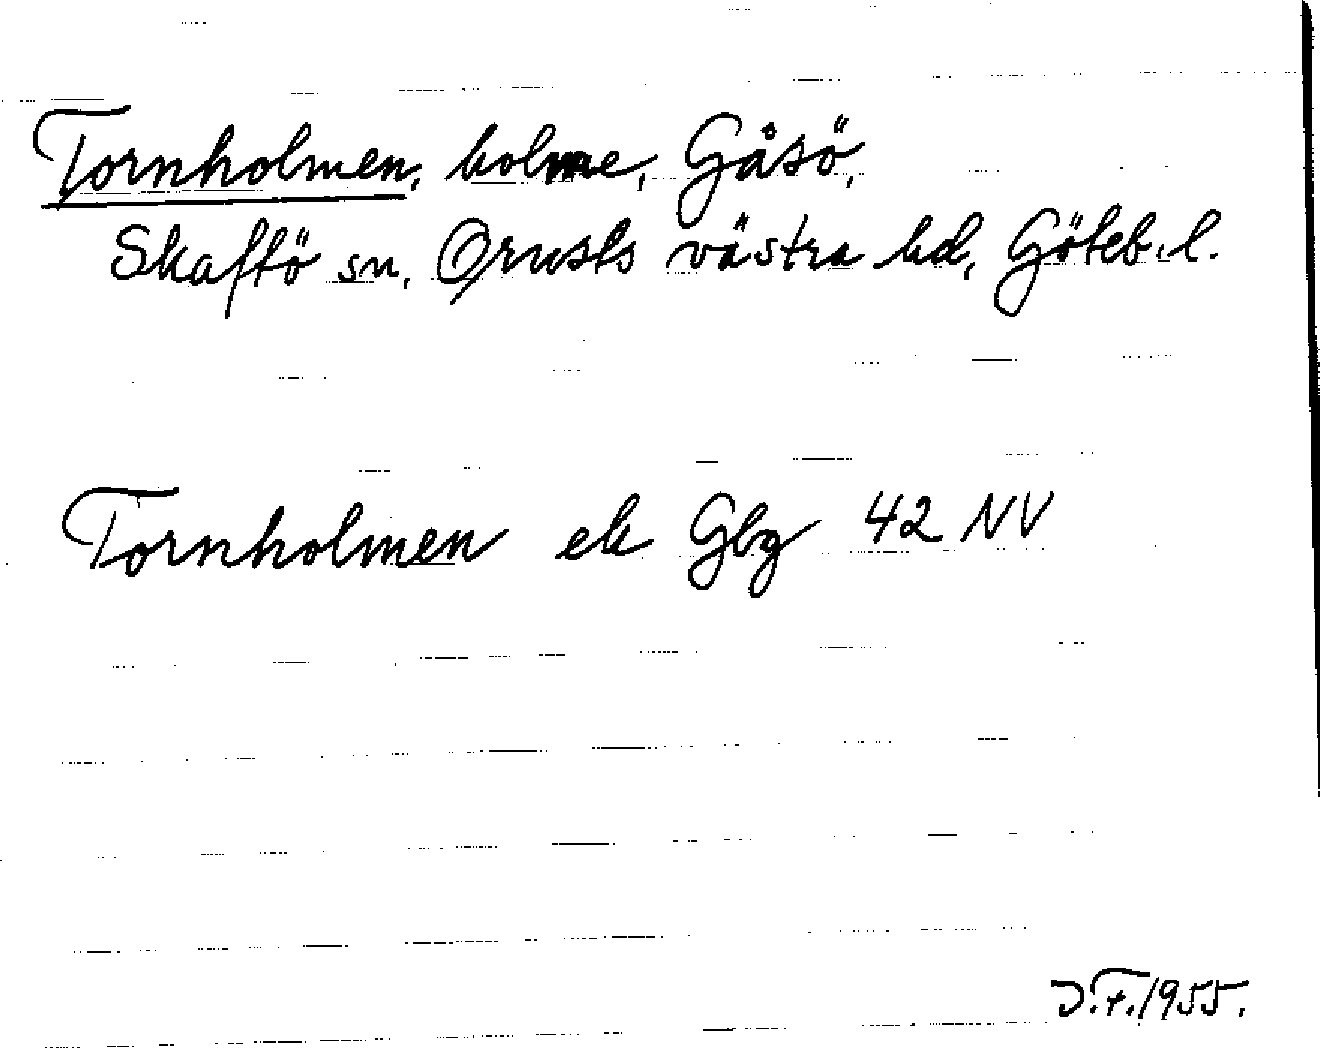 Tornholmen, holme, Gåsö,
Skaftö sn, Orusts västra hd, Göteb. l.
Tornholmen ek Gbg 42 NV
J.F. 1955.